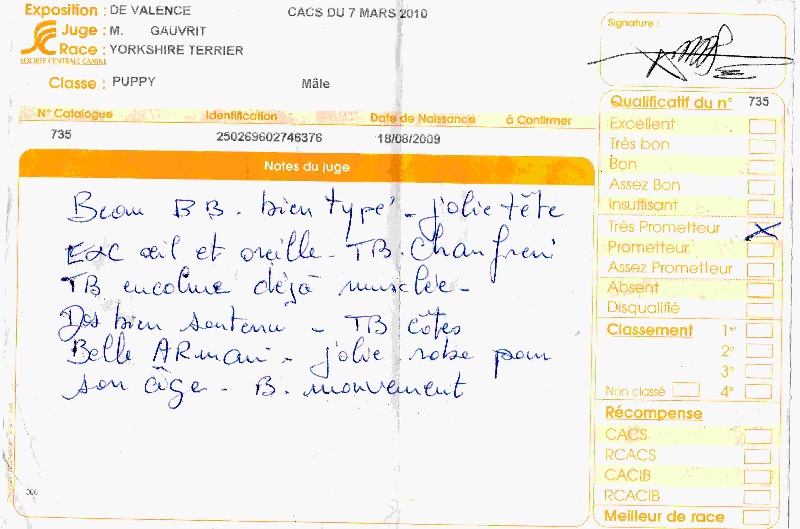 Exposition : DE VALENCE CACS DU 7 MARS 2010
Juge : M. GAUVRIT
Race : YORKSHIRE TERRIER
SOCIÉTÉ CENTRALE CANINE
Classe : PUPPY Mâle
N° Catalogue Identification Date de Naissance à Confirmer
735 250269602746376 18/08/2009
Notes du juge
Beau BB. bien typé - jolie tête
EXC œil et oreille - TB. Chanfrein
TB encolure déjà musclée -
Dos bien soutenu - TB côtes
Belle - jolie robe pour
son âge - B. mouvement
Signature :
Qualificatif du n° 735
Excellent
Très bon
Bon
Assez Bon
Insuffisant
Très Prometteur X
Prometteur
Assez Prometteur
Absent
Disqualifié
Classement 1er
2e
3e
Non classé 4e
Récompense
CACS
RCACS
CACIB
RCACIB
Meilleur de race